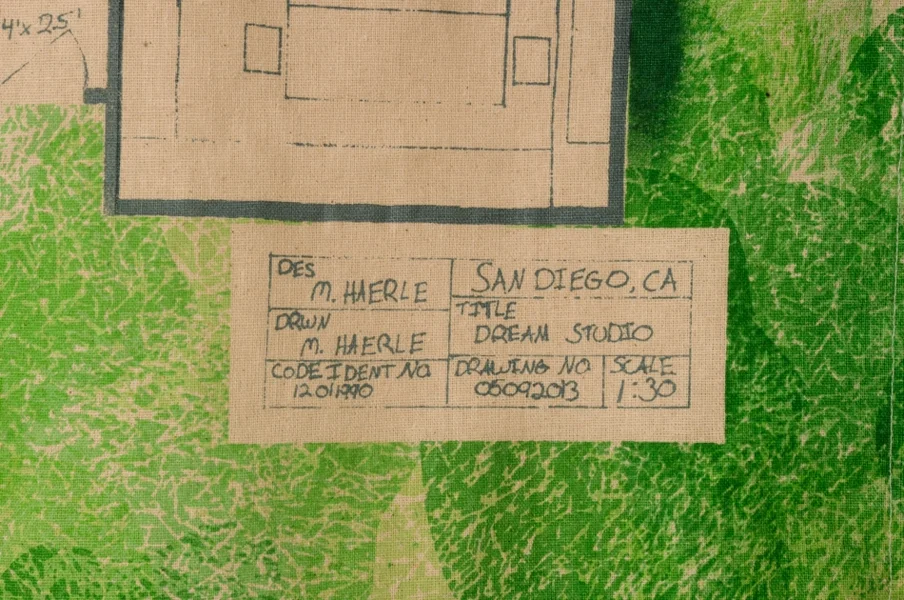 4'x 2.5'
DES
M. HAERLE
SAN DIEGO, CA
DRWN
M. HAERLE
TITLE
DREAM STUDIO
CODE IDENT NO
12011990
DRAWING NO
05092013
SCALE
1:30